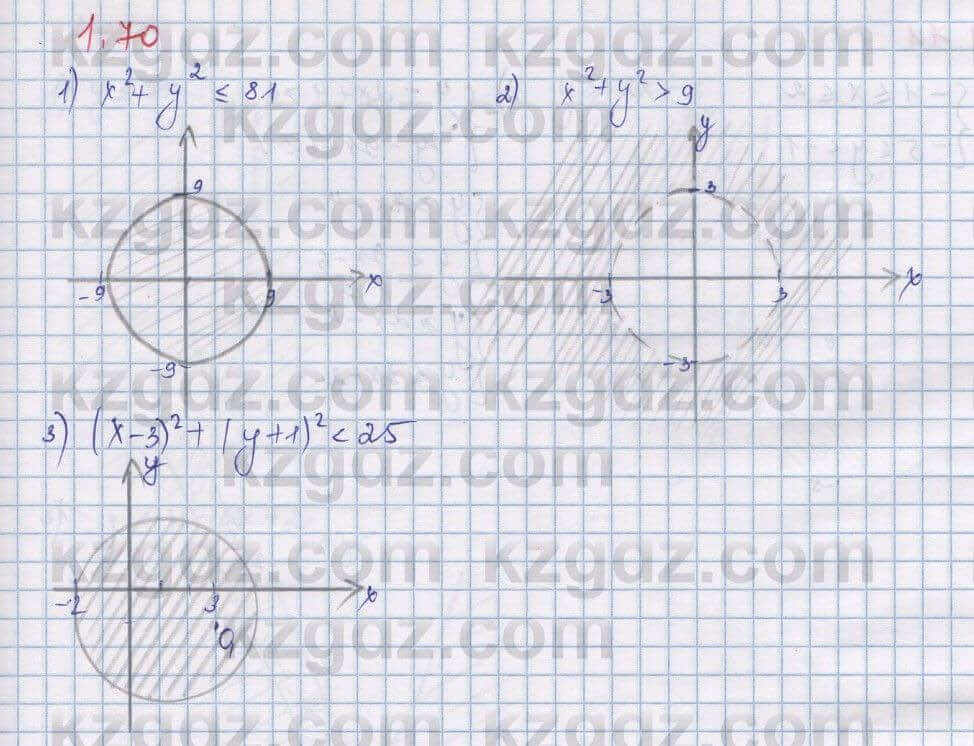 1.70
1) x² + y² ≤ 81
2) x² + y² > 9
9
-9
9
x
-9
y
3
-3
3
x
-3
3) (x-3)² + (y+1)² < 25
y
-2
3
x
kzgdz.com kzgdz.com
kzgdz.com
kzgdz.com kzgdz.com
kzgdz.com
kzgdz.com kzgdz.com
kzgdz.com
kzgdz.com kzgdz.com
kzgdz.com
kzgdz.com kzgdz.com